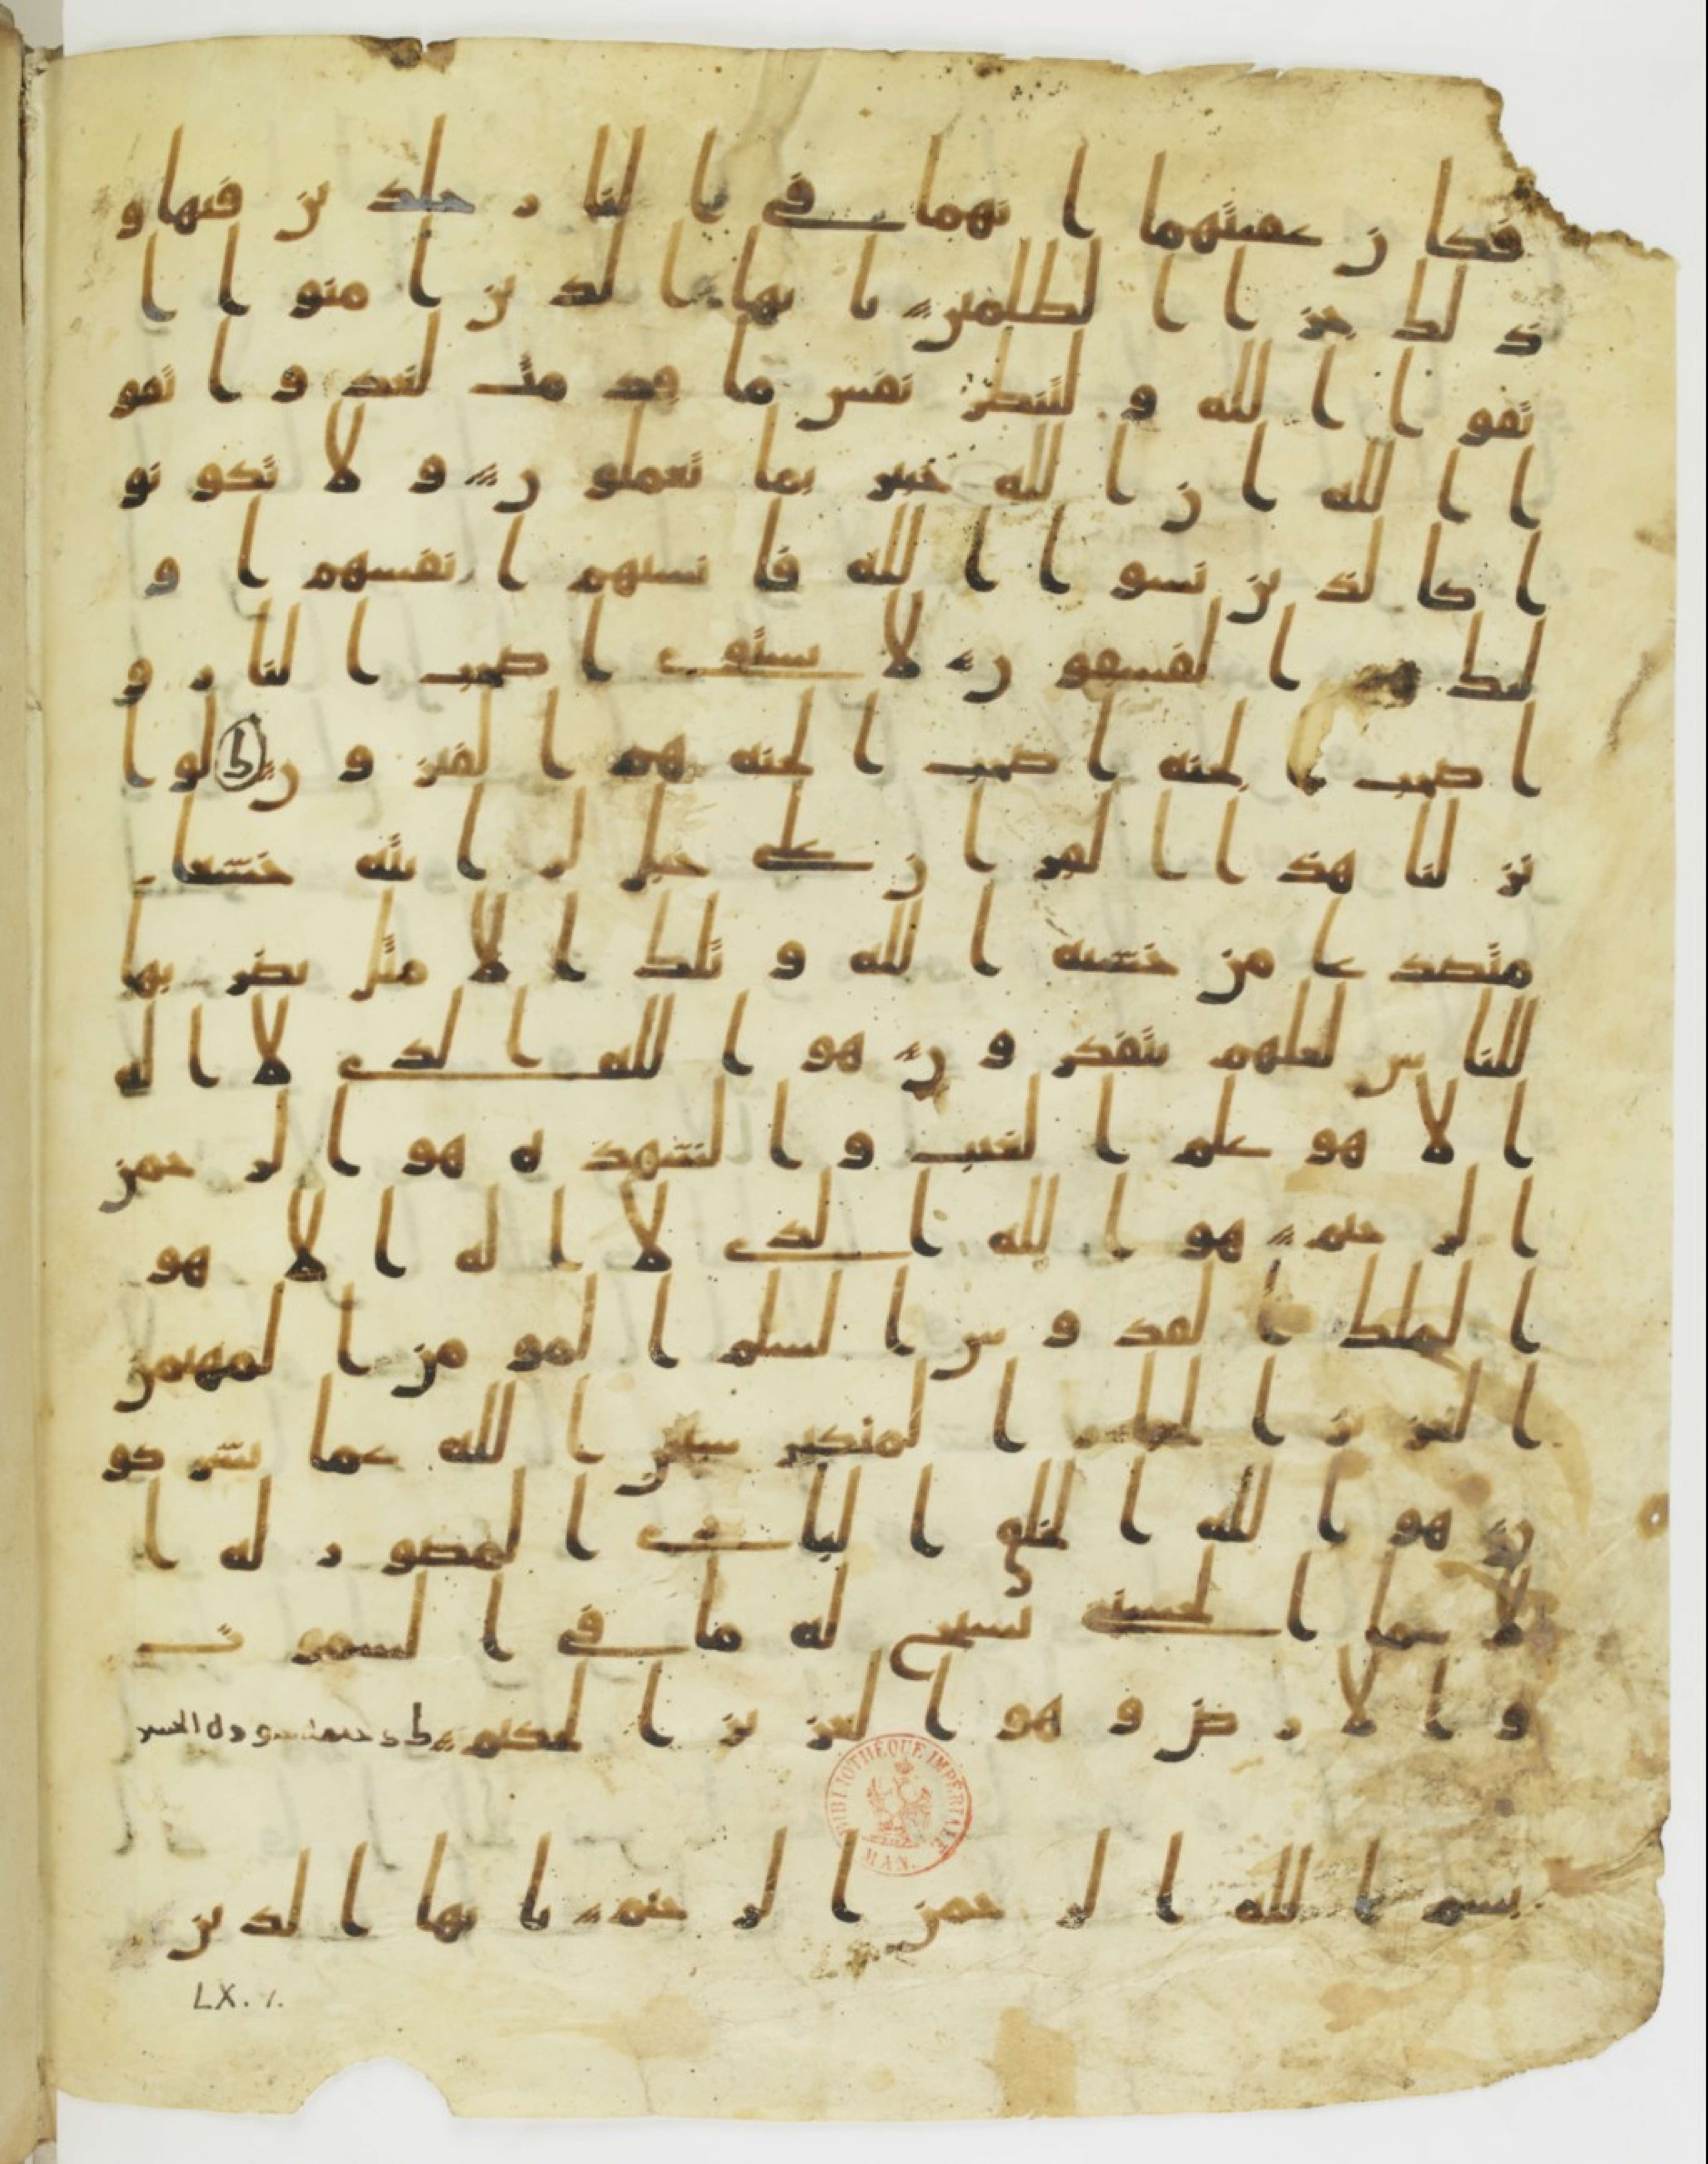 فكا ن عقبتهما ا نهما في ا لنا ر خلد ين فيها و
ذ لك جز ا ا لظلمين يا يها ا لذ ين ا منو ا ا
تقو ا ا لله و لتنظر نفس ما قد مت لغد و ا تقو
ا ا لله ا ن ا لله خبير بما تعملو ن و لا تكو نو
ا كا لذ ين نسو ا ا لله فا نسيهم ا نفسهم ا و
لئك هم ا لفسقو ن لا يستوي ا صحب ا لنا ر و
ا صحب ا لجنه ا صحب ا لجنه هم ا لفئز و ن لو ا
نز لنا هذ ا ا لقر ا ن على جبل لر ا يته خشعا
متصدعا من خشيه ا لله و تلك ا لا مثل نضر بها
للنا س لعلهم يتفكر و ن هو ا لله ا لذي لا ا له
ا لا هو علم ا لغيب و ا لشهد ه هو ا لر حمن
ا لر حيم هو ا لله ا لذي لا ا له ا لا هو
ا لملك ا لقد و س ا لسلم ا لمو من ا لمهيمن
ا لعز يز ا لجبا ر ا لمتكبر سبحن ا لله عما يشر كو
ن هو ا لله ا لخلق ا لبا ري ا لمصو ر له ا
لا سما ا لحسنى يسبح له ما في ا لسمو ت
و ا لا ر ض و هو ا لعز يز ا لحكيم
بسم ا لله ا لر حمن ا لر حيم يا يها ا لذ ين
LX. 1.
BIBLIOTHÈQUE IMPÉRIALE MAN.